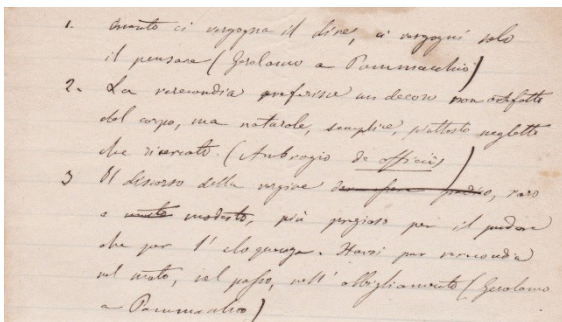 1. Quanto ci vergogna il dire, ci vergogni solo
il pensare (Gerolamo a Pammachio)
2. La verecondia preferisce un decoro non adfatto
del corpo, ma naturale, semplice, piuttosto negletto
che ricercato. (Ambrogio de officiis)
3 Il discorso della vergine, raro
e modesto, più pregioso per il pudore
che per l' eloquenza. Havvi pur verecondia
nel moto, nel passo, nell' abbigliamento (Gerolamo
a Pammachio)